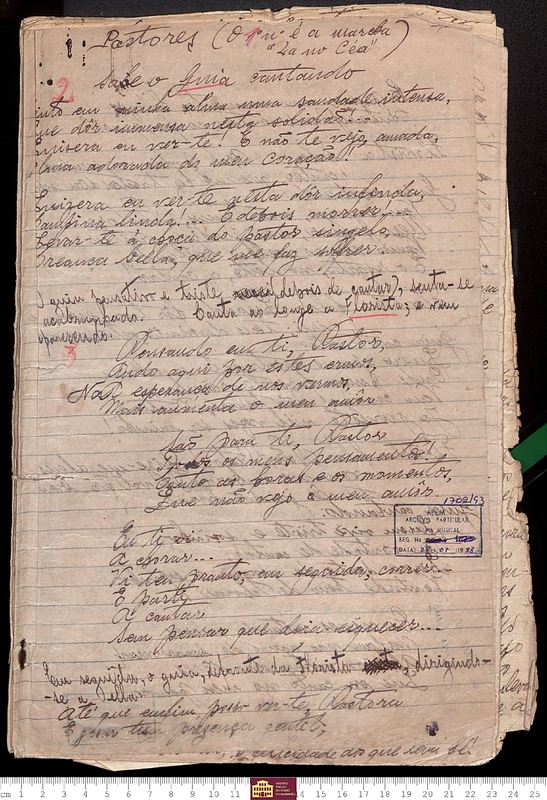 Pastores (O 1º nº é a marcha
"Lá no Céo")
2
Sahe o Guia cantando
into em minha alma uma saudade intensa,
que dôr immensa nesta solidão...
Quizera eu ver-te! E não te vejo, amada,
alma adorada do meu coração!
Quizera eu ver-te nesta dôr infinda,
linda... E depois morrer!
Levar-te á do pastor singelo,
Creança bella, que me faz soffrer
O guia pensativo e triste (depois de cantar), senta-se
acabrunhado. Canta ao longe a Florista, e vem
apparecendo
3
Pensando em ti, Pastor,
Ando aqui por estes ermos,
Na esperança de nos vermos,
Mais augmenta o meu amôr
São para ti, Pastor
Todos os meus pensamentos!
Conto as horas e os momentos,
Que não vejo o meu amôr
1702/53
APEM
ARQUIVO PARTICULAR
MUSICAL
REG. No
DATA: 07 1998
Eu ti
A chorar...
Vi teu pranto, em seguida, correr...
E parti
A cantar
Sem pensar que devia esquecer...
Em seguida, o guia, diante da Florista, dirigindo-
se a ella
Até que emfim pude ver-te, Pastora
E gosar tua presença gentil,
cm 1 2 3 4 5 6 7 8 9 10 11 12 14 15 16 17 18 19 20 21 22 23 24 25